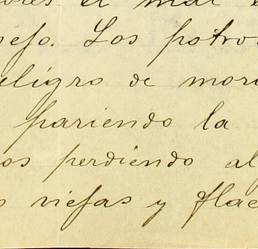 ores el mal e
nejo. Los potro
eligro de mori
pariendo la
os perdiendo al
s viejas y flac